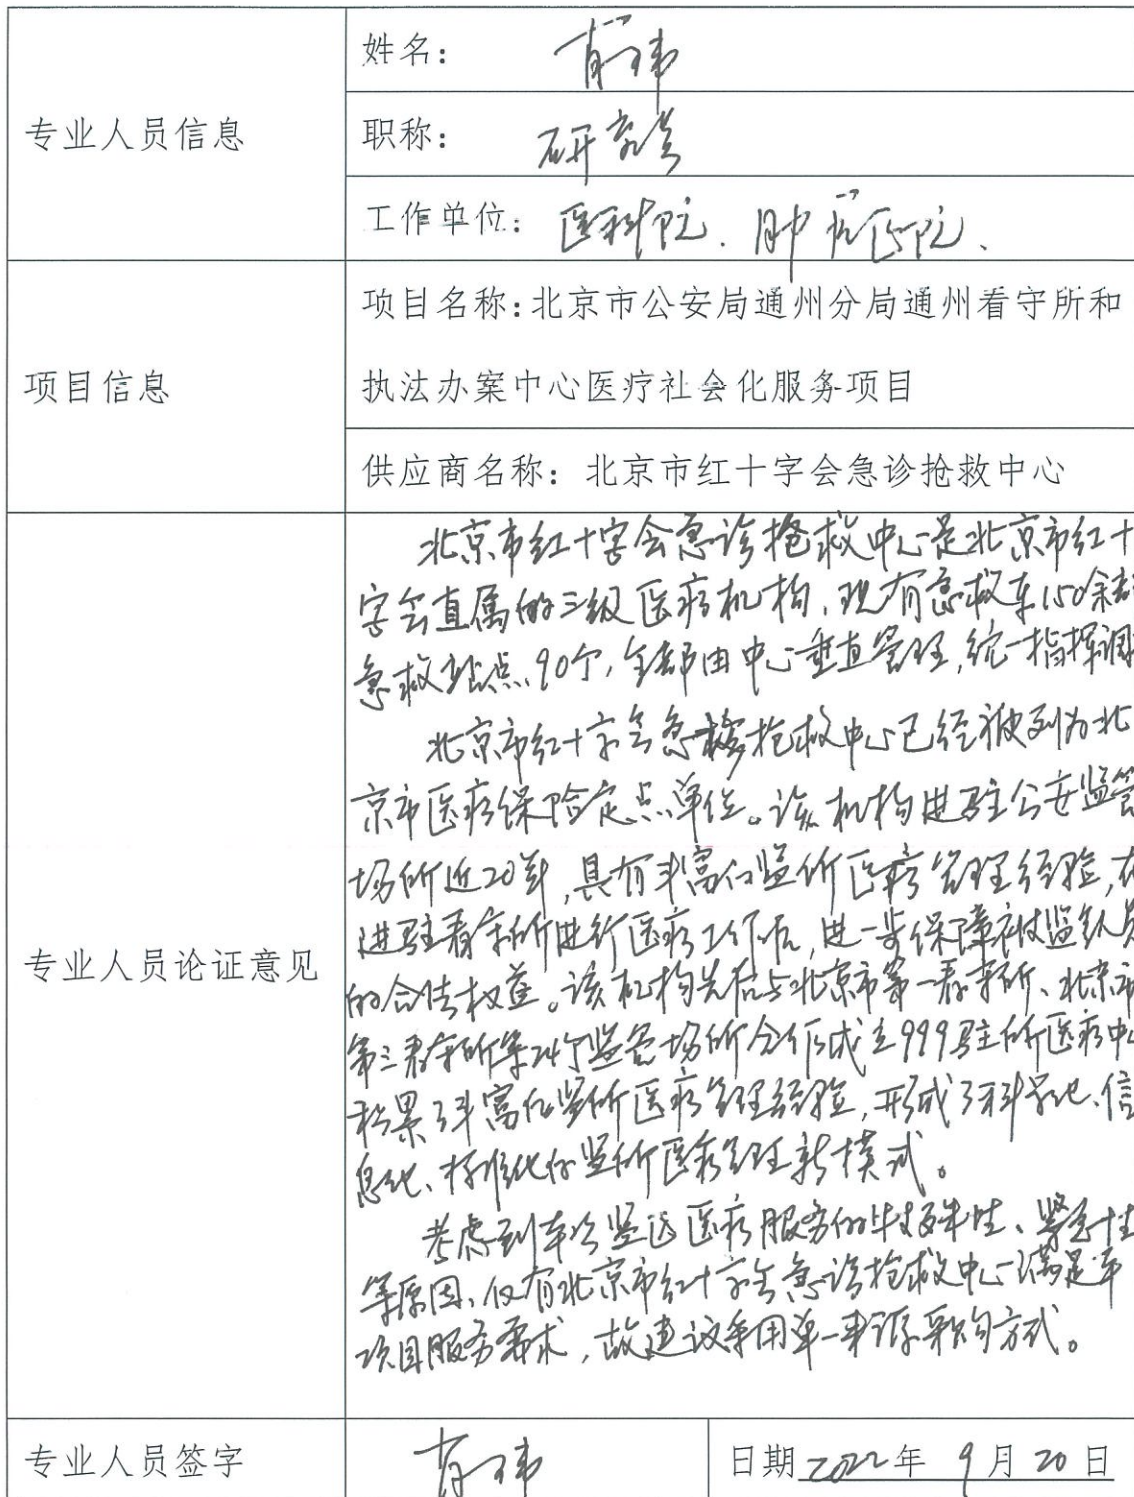 专业人员信息
姓名：肖玮
职称：研究员
工作单位：医科院.肿瘤医院、
项目信息
项目名称：北京市公安局通州分局通州看守所和
执法办案中心医疗社会化服务项目
供应商名称：北京市红十字会急诊抢救中心
专业人员论证意见
北京市红十字会急诊抢救中心是北京市红十
字会直属的三级医疗机构，现有急救车150余部
急救站点90个，全部由中心垂直管理，统一指挥调
北京市红十字会急诊抢救中心已经被列为北
京市医疗保险定点单位。该机构进驻公安监管
场所近20年，具有丰富的监所医疗管理经验，在
进驻看守所进行医疗工作后，进一步保障被监管人员
的合法权益。该机构先后与北京市第一看守所、北京市
第三看守所等24个监管场所合作成立999驻所医疗中
积累了丰富的监所医疗管理经验，形成了科学化、信
息化、标准化的监所医疗管理新模式。
考虑到本次监区医疗服务的特殊性、紧急性
等原因，仅有北京市红十字会急诊抢救中心满足本
项目服务需求，故建议采用单一来源采购方式。
专业人员签字 肖玮 日期2022年9月20日